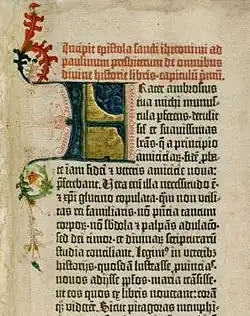 Incipit epistola sancti iheronimi ad
paulinum presbiterum de omnibus
divine historie libris. capitulū pͥmū.
Frater ambrosius
tua michi munuſ⸗
cula perferens. detulit
sil̓ et suauissimas
lr̄as. q̄ a principio
amiciciaꝝ. fidē ꝓba⸗
te iam fidei ⁊ veteris amicicie noua:
p̄ferebant. Vera em̄ illa necessitudo ē.
⁊ xp̄i glutino copulata: qm̄ non vtili⸗
tas rei familiaris. nō p̄ncia tantum
corpoꝝ. nō s̄bdola ⁊ palpās adulacō.
sed dei timor. et diuinaꝝ scripturaꝝ
studia conciliant. Legim⁹ in veterib⁹
historijs. quosdā lustrasse ꝓuincias.
nouos adijsse ppl̓os. maria trāsisse.
ut eos quos ex libris nouerant: corā
qȝ viderēt. Sicut pitagoras memphi⸗